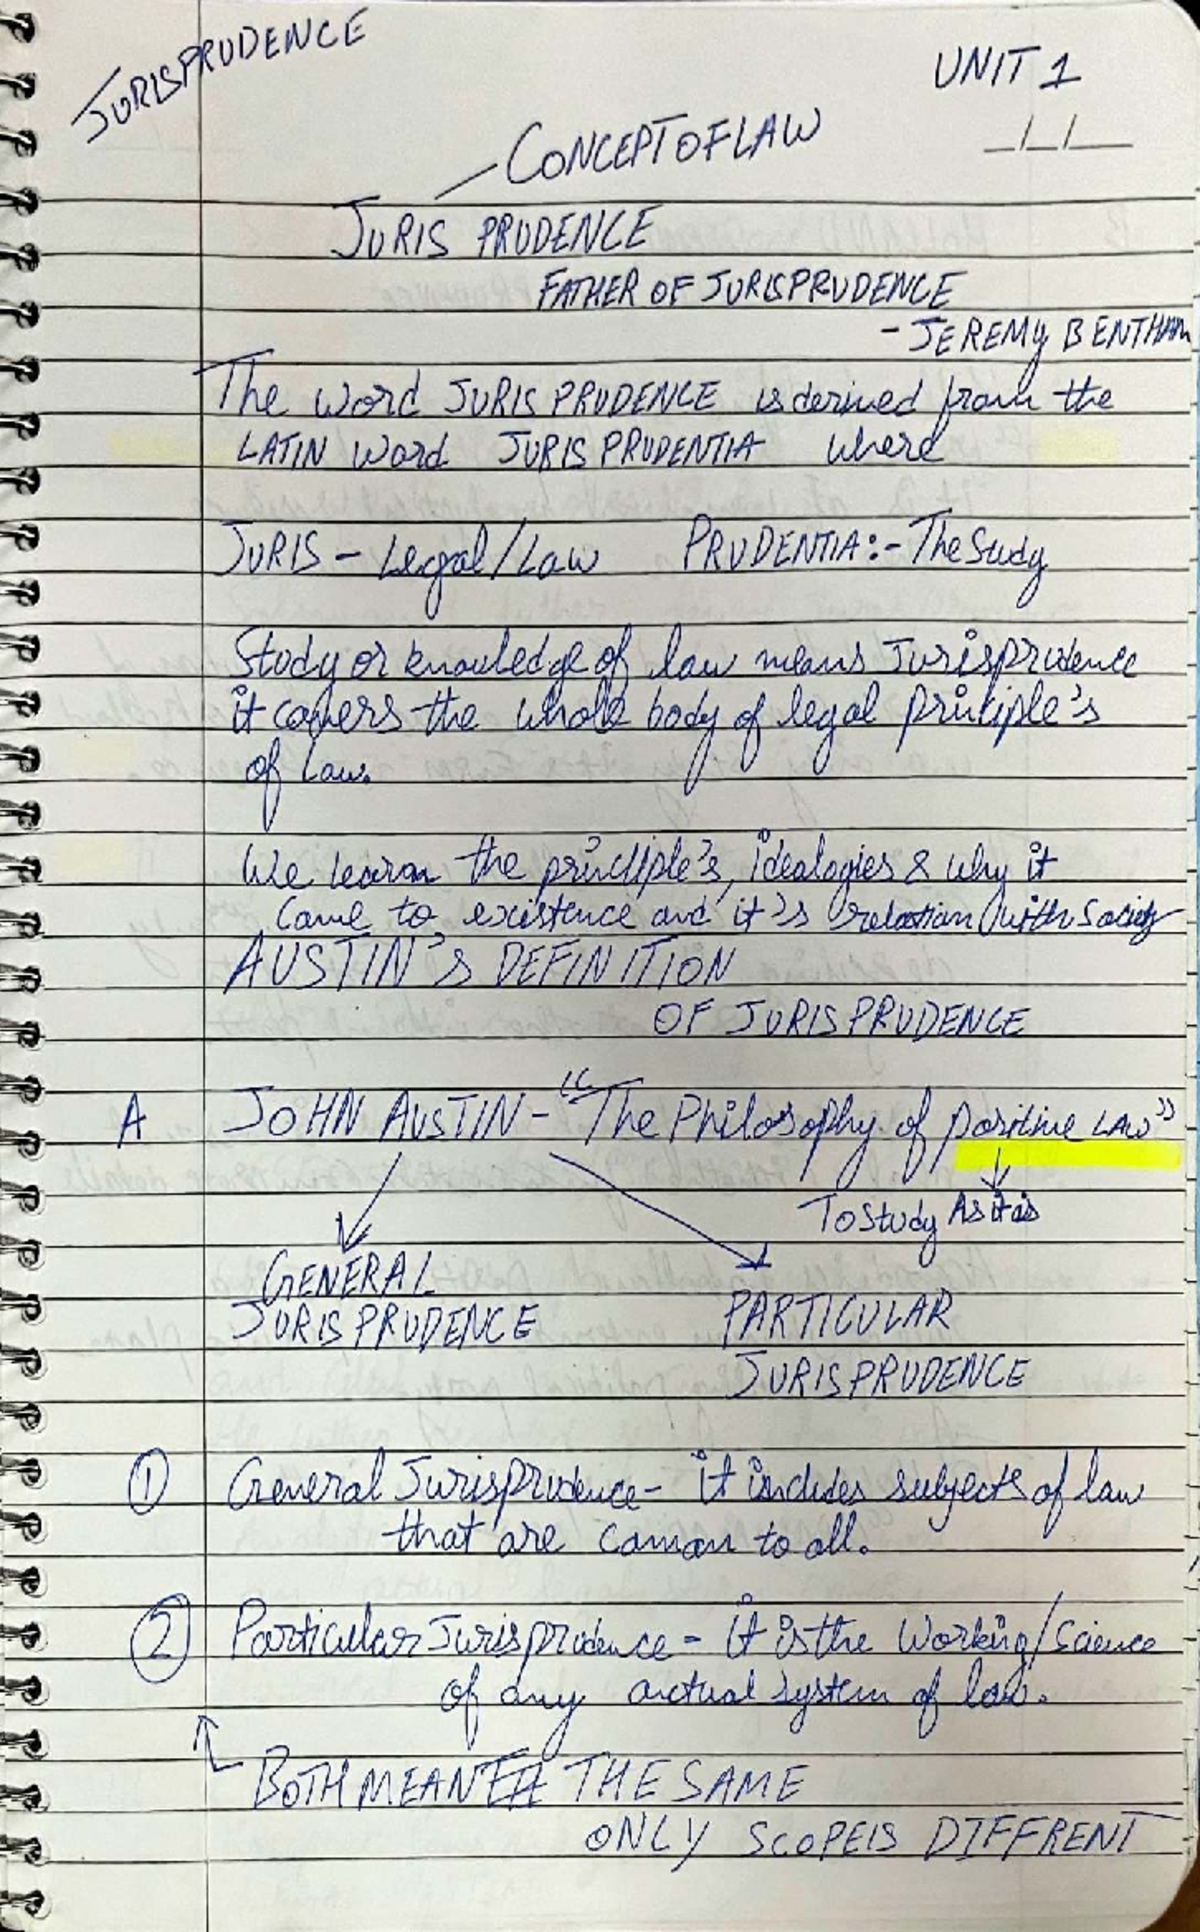 JURISPRUDENCE
UNIT 1
_/_/__
CONCEPT OF LAW
JURIS PRUDENCE
FATHER OF JURISPRUDENCE
- JEREMY BENTHAM
The word JURIS PRUDENCE is derived from the
LATIN word JURIS PRUDENTIA where
JURIS - Legal/Law PRUDENTIA:- The Sudy
Study or knowledge of law means Jurisprudence
it covers the whole body of legal principle's
of Law.
We learn the principle's, idealogies & why it
came to existence and it's relation with Society
AUSTIN'S DEFINITION
OF JURIS PRUDENCE
A JOHN AUSTIN - "The Philosophy of positive LAW"
To Study As it is
GENERAL
JURIS PRUDENCE
PARTICULAR
JURIS PRUDENCE
① General Jurisprudence - it includes subjects of law
that are comon to all.
② Particular Jurisprudence - it is the Working/Science
of any actual system of law.
BOTH MEAN THE SAME
ONLY SCOPE IS DIFFRENT